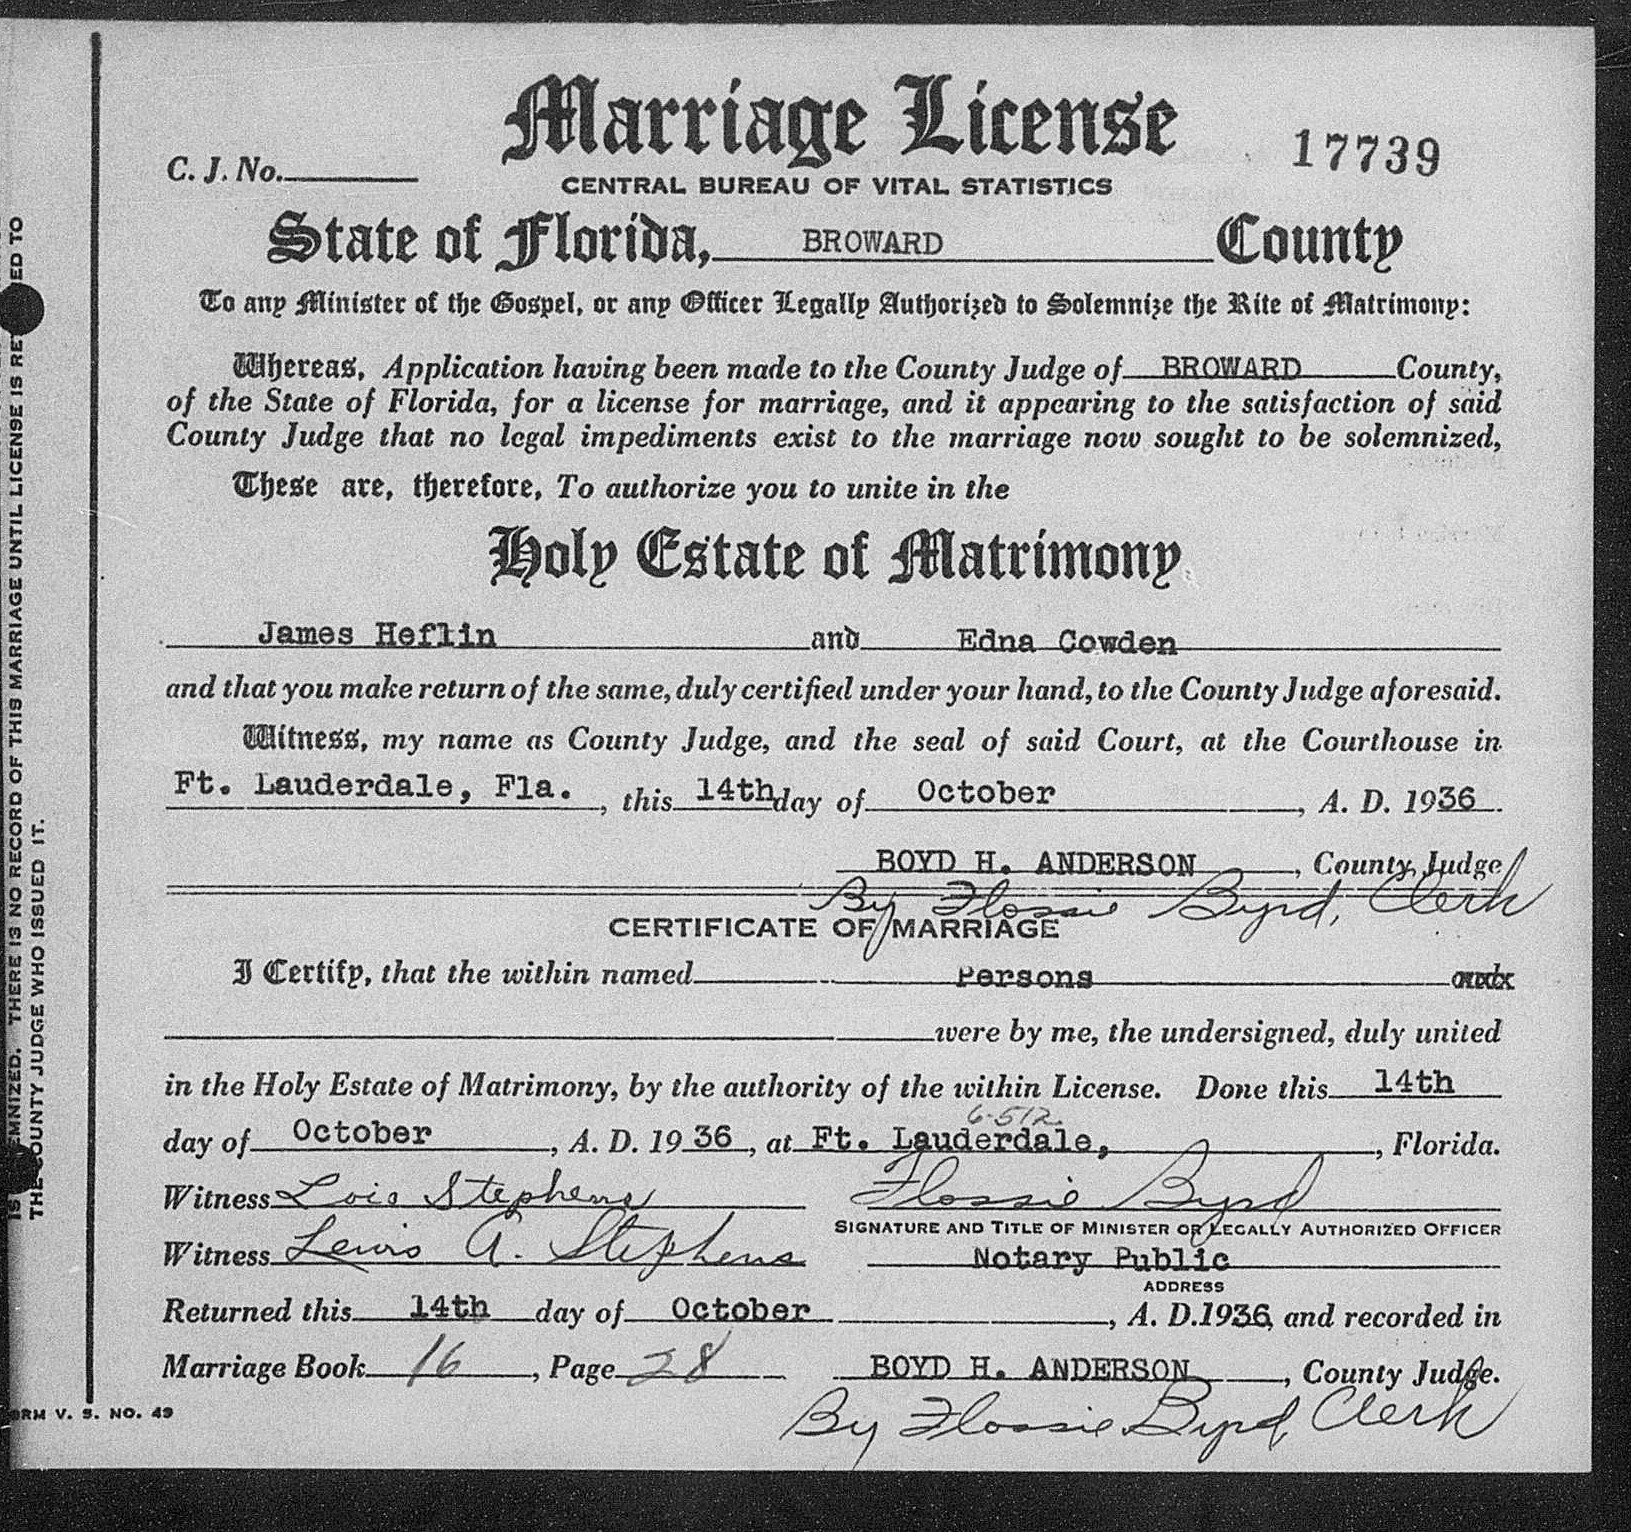 Marriage License
17739
C. J. No.
CENTRAL BUREAU OF VITAL STATISTICS
State of Florida, BROWARD County
To any Minister of the Gospel, or any Officer Legally Authorized to Solemnize the Rite of Matrimony:
Whereas, Application having been made to the County Judge of BROWARD County,
of the State of Florida, for a license for marriage, and it appearing to the satisfaction of said
County Judge that no legal impediments exist to the marriage now sought to be solemnized,
These are, therefore, To authorize you to unite in the
Holy Estate of Matrimony
James Heflin and Edna Cowden
and that you make return of the same, duly certified under your hand, to the County Judge aforesaid.
Witness, my name as County Judge, and the seal of said Court, at the Courthouse in
Ft. Lauderdale, Fla. , this 14th day of October , A. D. 1936
BOYD H. ANDERSON , County Judge
By Flossie Byrd, Clerk
CERTIFICATE OF MARRIAGE
I Certify, that the within named Persons and
were by me, the undersigned, duly united
in the Holy Estate of Matrimony, by the authority of the within License. Done this 14th
6-512
day of October , A. D. 1936 , at Ft. Lauderdale, , Florida.
Witness Lois Stephens Flossie Byrd
SIGNATURE AND TITLE OF MINISTER OR LEGALLY AUTHORIZED OFFICER
Witness Lewis A. Stephens Notary Public
ADDRESS
Returned this 14th day of October , A. D. 1936, and recorded in
Marriage Book 16 , Page 28 BOYD H. ANDERSON , County Judge.
By Flossie Byrd, Clerk
FORM V. S. NO. 49
THERE IS NO RECORD OF THIS MARRIAGE UNTIL LICENSE IS TO
THE COUNTY JUDGE WHO ISSUED IT.